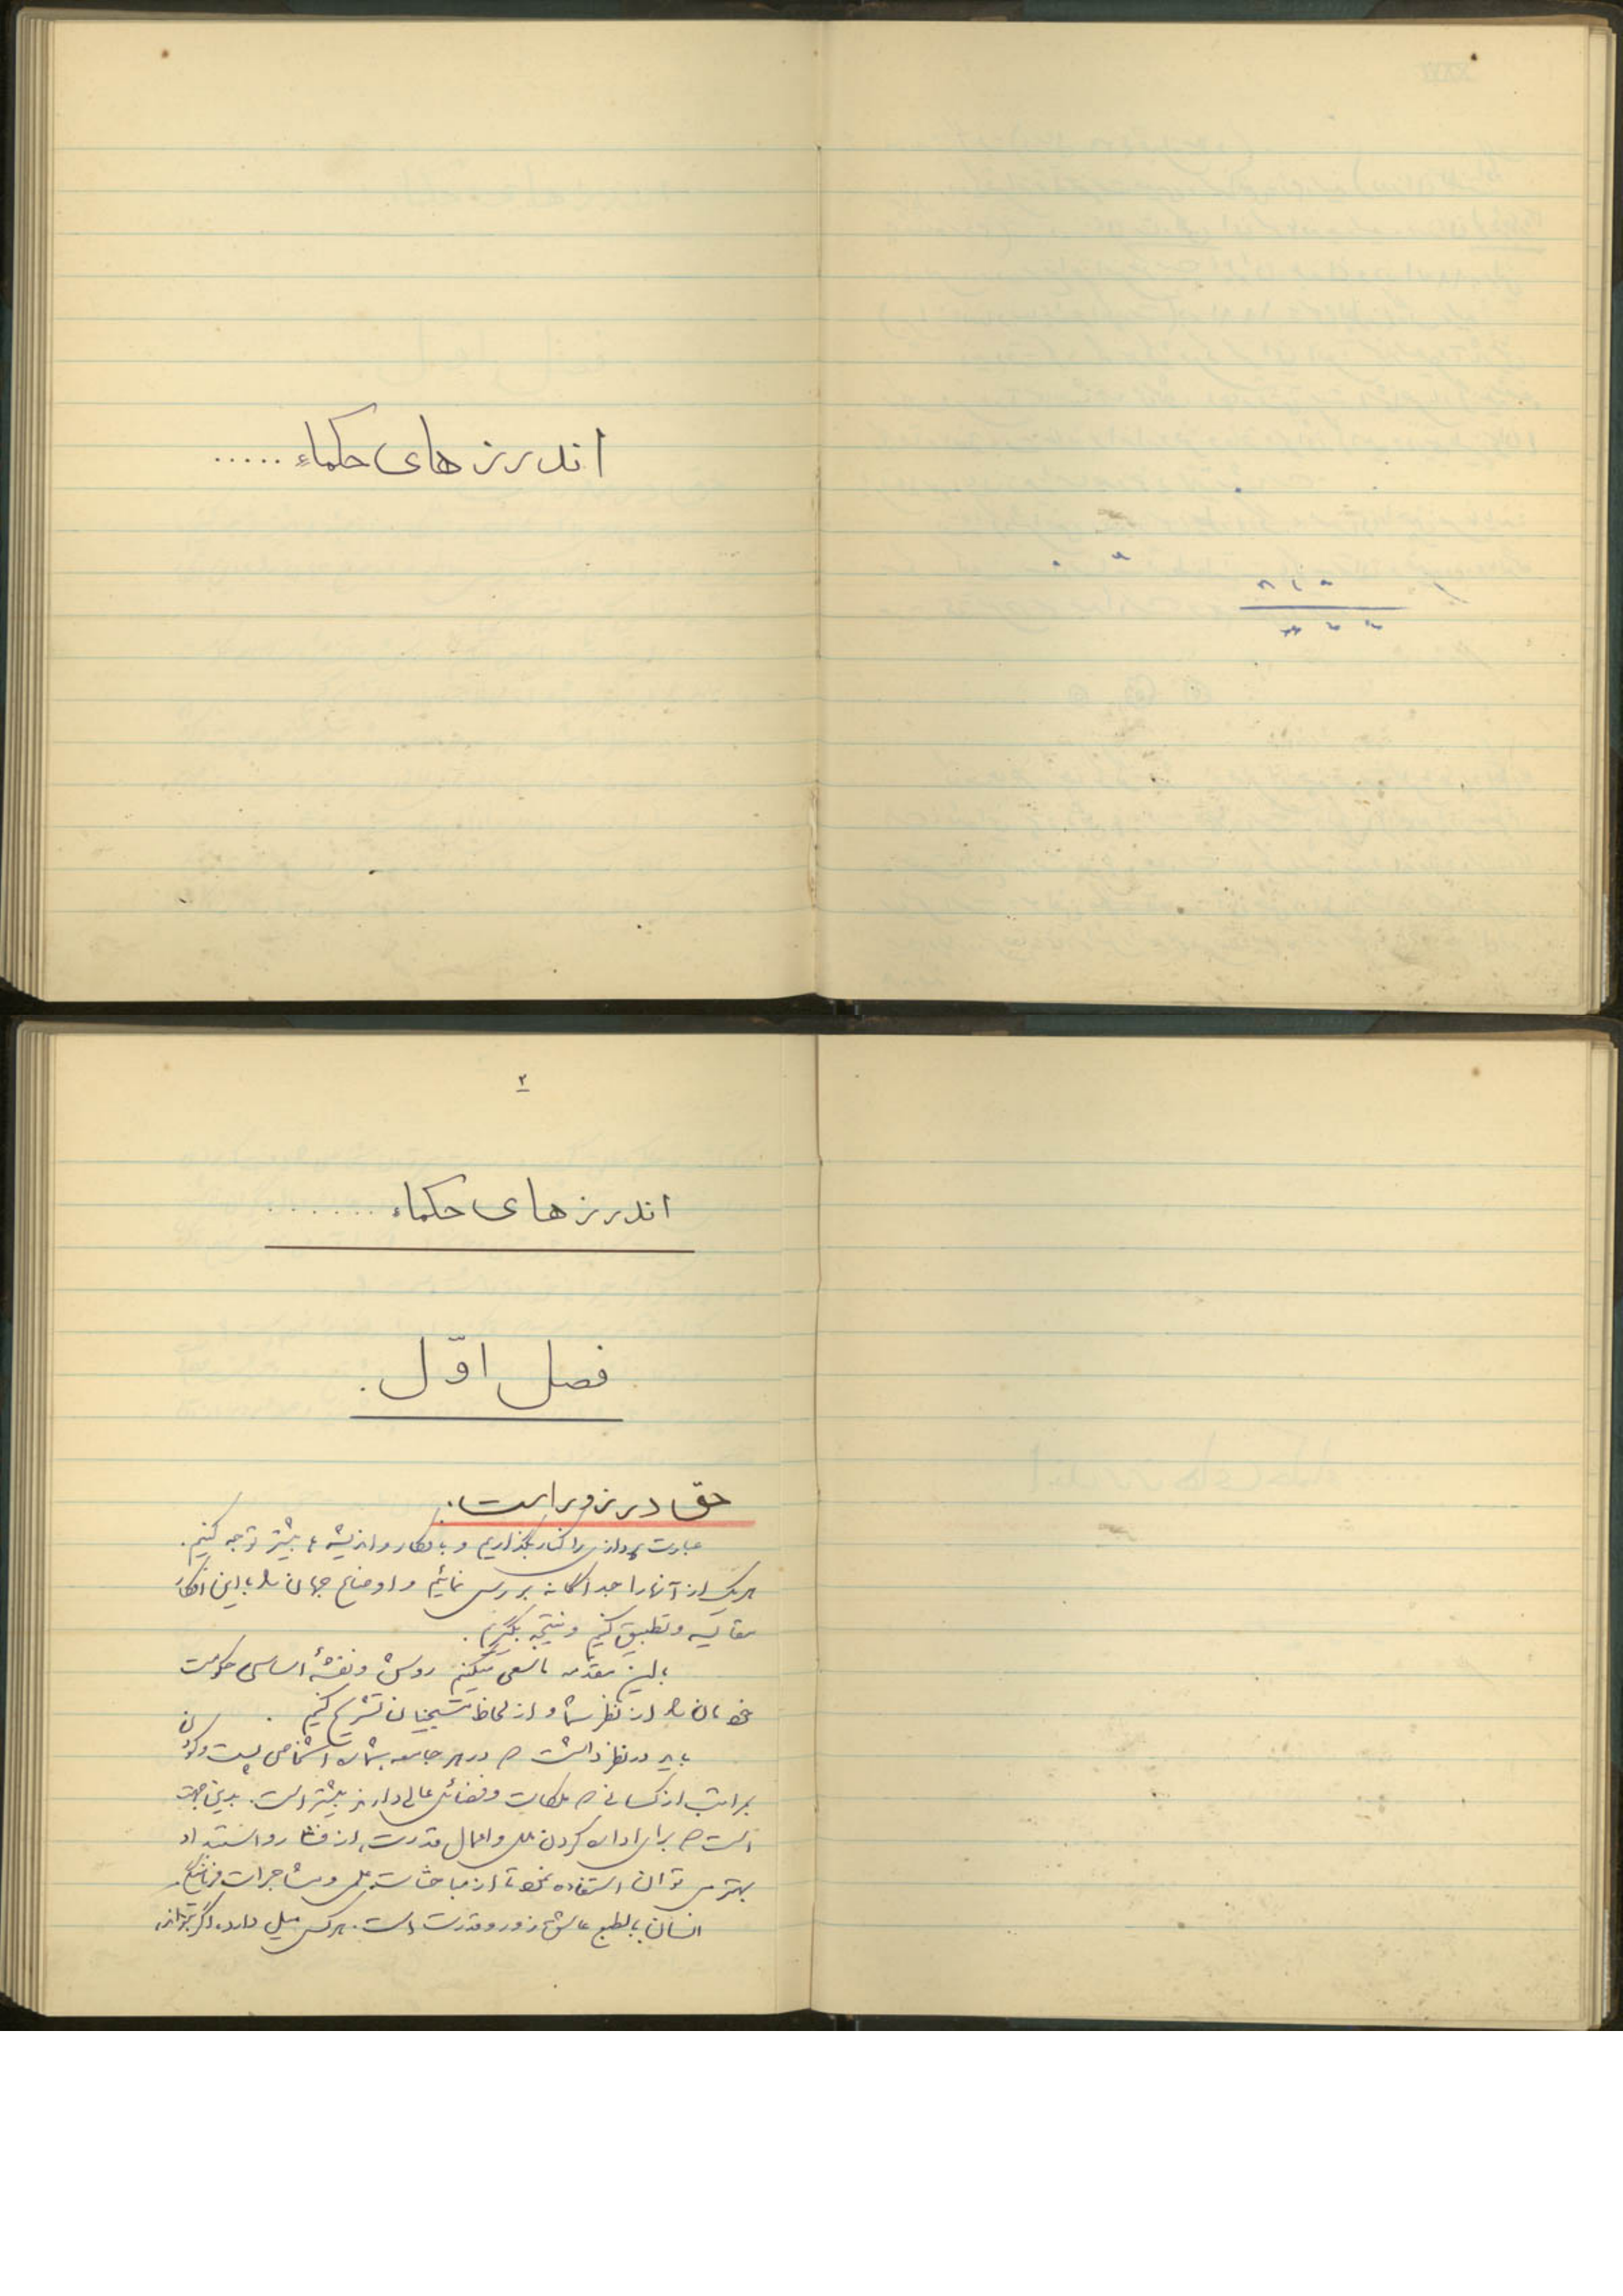 اندرزهای حکماء .....
۲
اندرزهای حکماء .......
فصل اوّل.
حق در زور است.
عبارت پردازی را کنار بگذاریم و بافکار و اندیشه ها بیشتر توجه کنیم.
هریک از آنها را جداگانه بررسی نمائیم و اوضاع جهان را با این افکار
مقایسه و تطبیق کنیم و نتیجه بگیریم.
با این مقدمه ما سعی میکنیم روش و نقشهٔ اساسی حکومت
خودمان را از نظر شما و از لحاظ مسیحیان تشریح کنیم.
باید در نظر داشت که در هر جامعه بشماره اشخاص پست و کودن
بمراتب از کسانی که ملکات و فضائل عالی دارند بیشتر است. بدین جهت
است که برای اداره کردن ملل و اعمال قدرت، از فشار و استبداد
بهتر می توان استفاده نمود تا از مباحثات علمی و مشاجرات
انسان بالطبع عاشق زور و قدرت است. هرکس میل دارد، اگر بتواند،